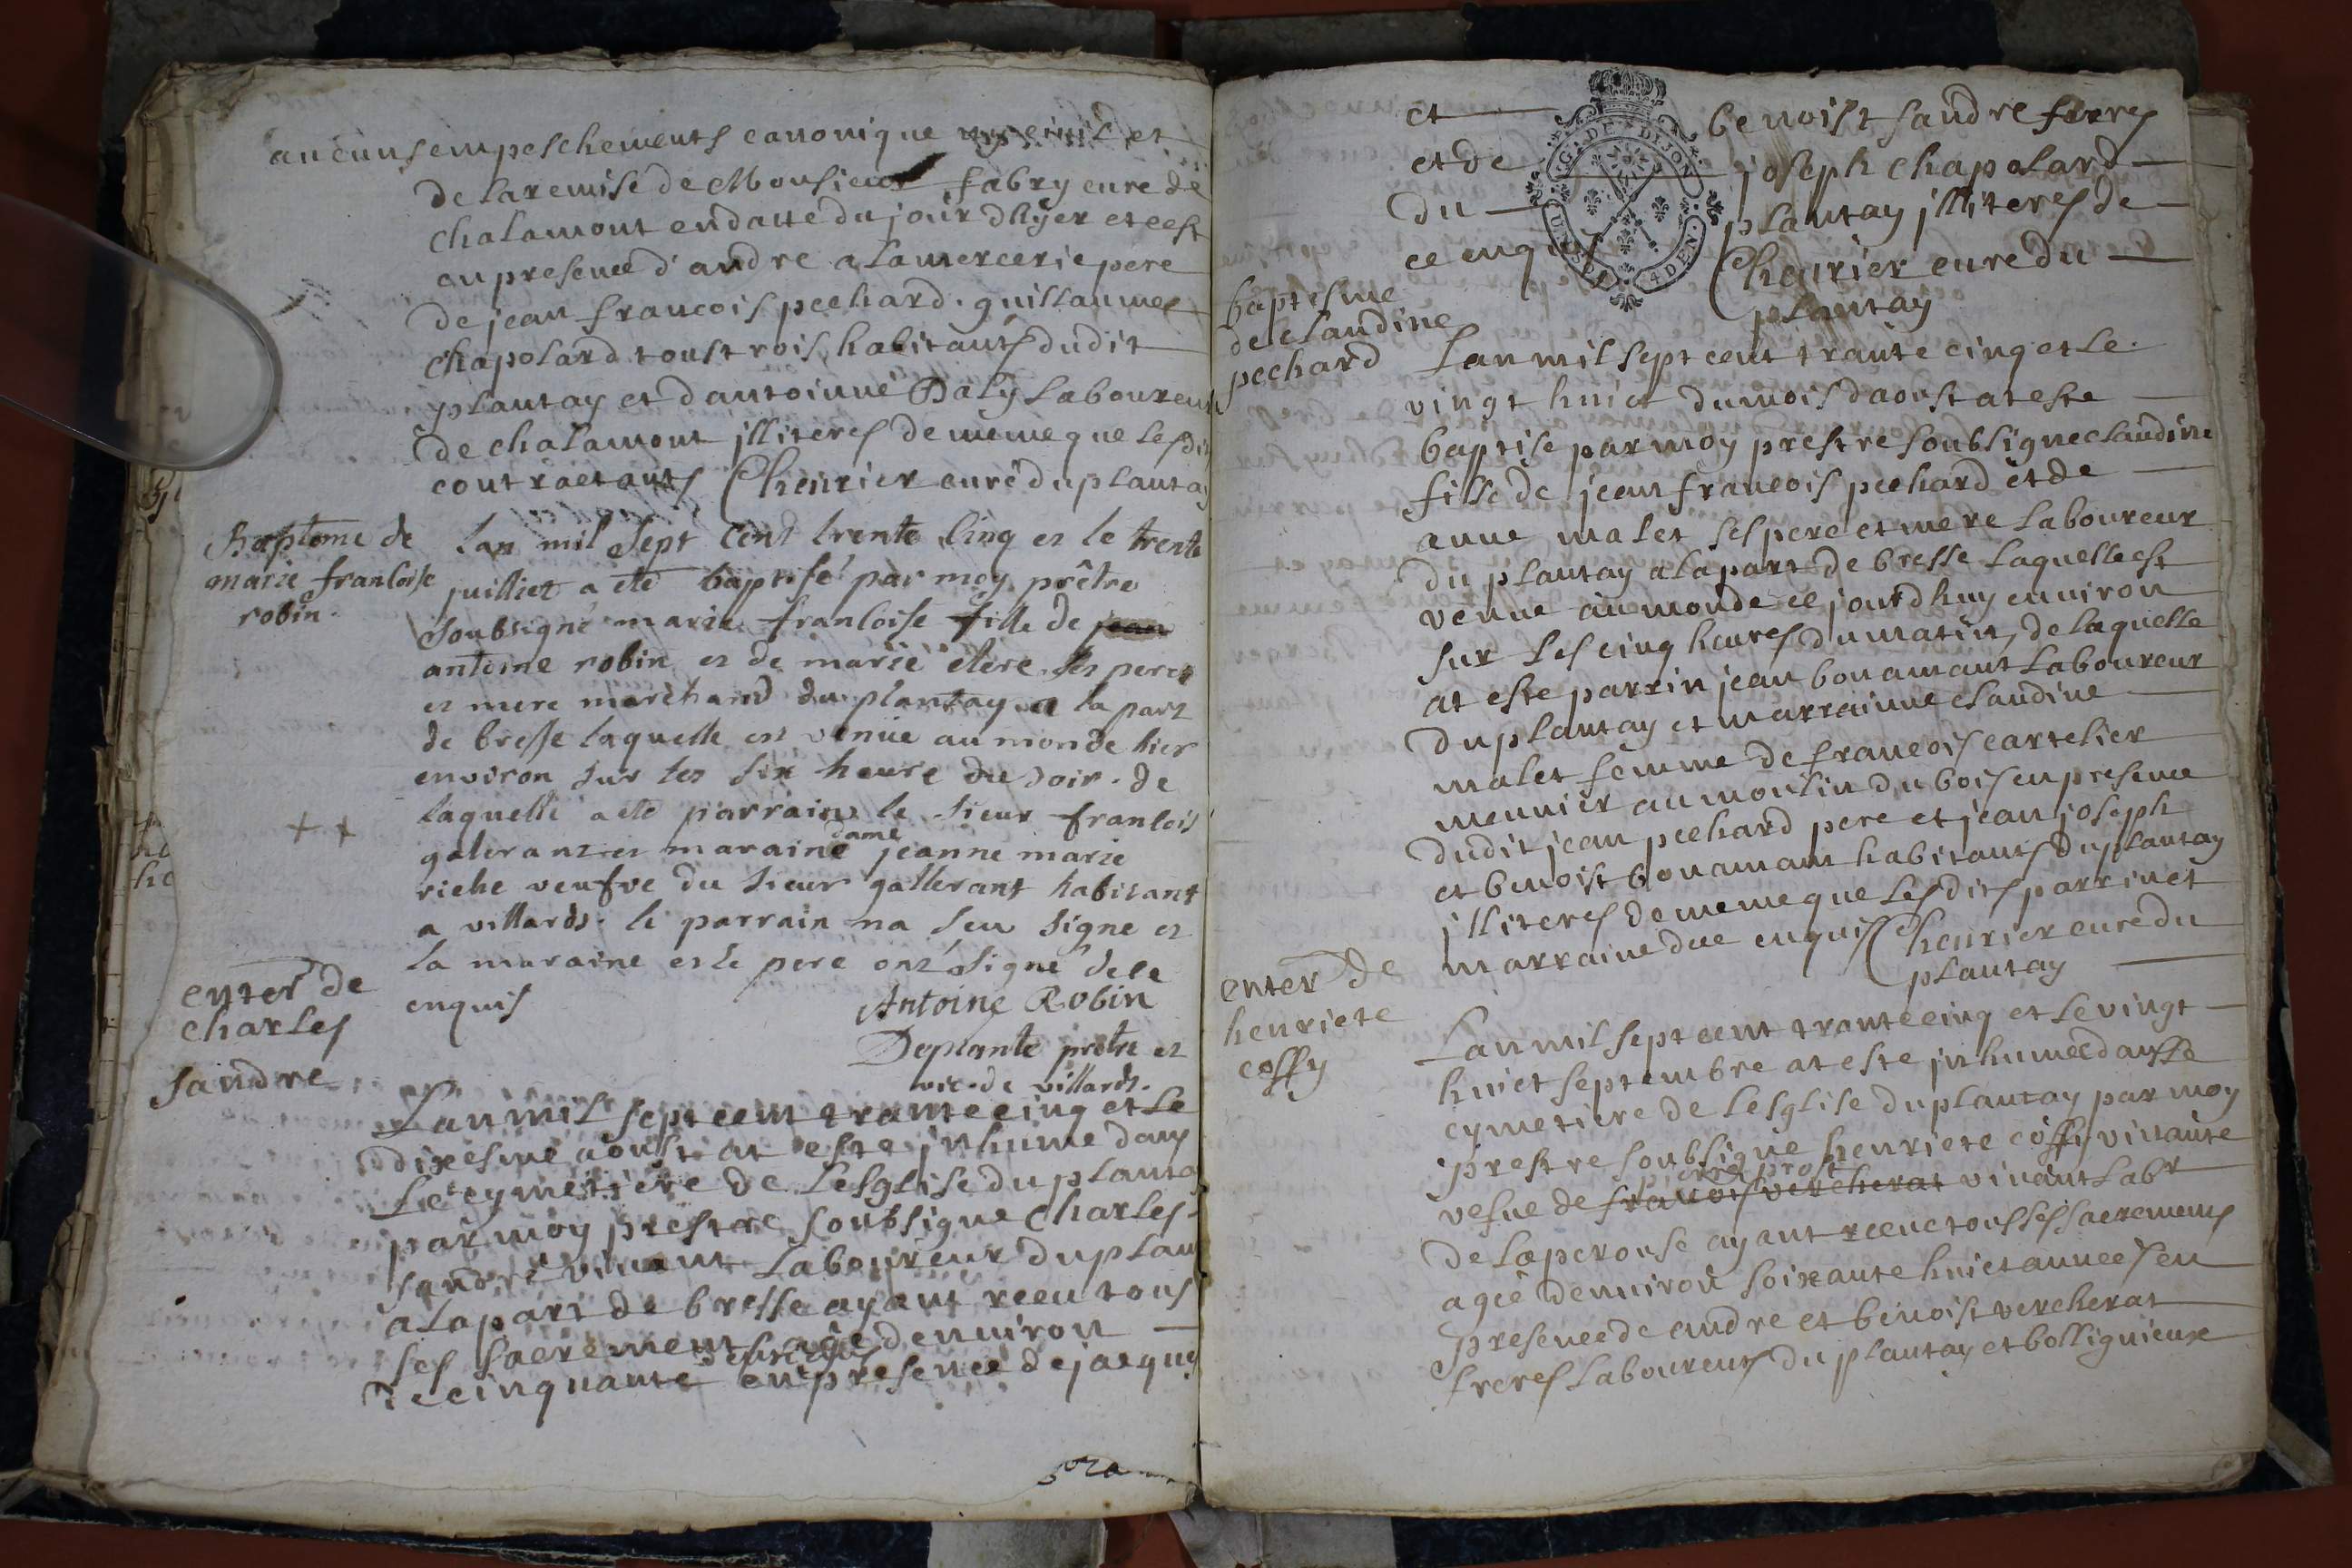 aucuns empeschements canonique ny civil et
de la remise de Monsieur fabry cure de
chalamont en datte du jour dhyer et cest
en presence d'andre alamercerie pere
de jean francois pechard. guillaume
chapolard tous trois habitants dudit
plantay et dantoinne Baly laboureur
de chalamont jlliteres de meme que lesdis
contractants Cheurier curé du planta
Baptome de
marie francoise
robin.
Lan mil Sept Cent trente Cinq et le trente
juilliet a été baptisé par moy prêtre
soubsigné marie francoise fille de jean
antoine robin et de marie clere ses peres
et mere marchand du plantay a la part
de bresse laquelle est venüe au monde hier
environ sur les six heure du soir. de
laquelle a été parrain le sieur francois
galerant et maraine dame jeanne marie
riche veufve du sieur gallerant habitant
a villards. le parrain na sceu signé et
la maraine et le pere ont signé de ce
enquis
Antoine Robin
Deplante prêtre et
vic. de villards.
enter de
charles
sandre
Lan mil sept cent trante cinq et le
dixesme aoust at este jnhume dans
le cymetiere de lesglise du planta
par moy prestre soubsigne charles
sandre vivant laboureur du plan
a la part de bresse ayant receu tous
ses sacrements agé denuiron
de cinquante en presence de jacques
et benoist sandre freres
et de joseph chapolard
du plantay jlliteres de
ce enquis Cheurier cure du
plantay
G. DE DIJON
4 DEN.
baptesme
de claudine
pechard
Lan mil sept cent trante cinq et le
vingt huict du mois daoust at este
baptise par moy prestre soubsigne claudine
fille de jean francois pechard et de
anne malet ses pere et mere laboureur
du plantay a la part de bresse laquelle est
venue au monde ce jourdhuy enuiron
sur les cinq heures du matin, de laquelle
at este parrin jean bonamant laboureur
du plantay et marrainne claudine
malet femme de francois cartelier
meunier au moulin du bois en presence
dudit jean pechard pere et jean joseph
et benoist bonamant habitants du plantay
jlliteres de meme que lesdits parrin et
marraine de ce enquis Cheurier cure du
plantay
enter de
henriete
coffy
Lan mil sept cent trante cinq et le vingt
huict septembre at este jnhumée dans le
cymetiere de lesglise du plantay par moy
prestre soubsigne henriete coffy viuante
pierre prost
vefue de francois vercherat viuant labr
de laperouse ayant receue tous ses sacrements
agée denuiron soixante huict annees en
presence de andre et benoist vercherat
freres laboureurs du plantay et bolligneux